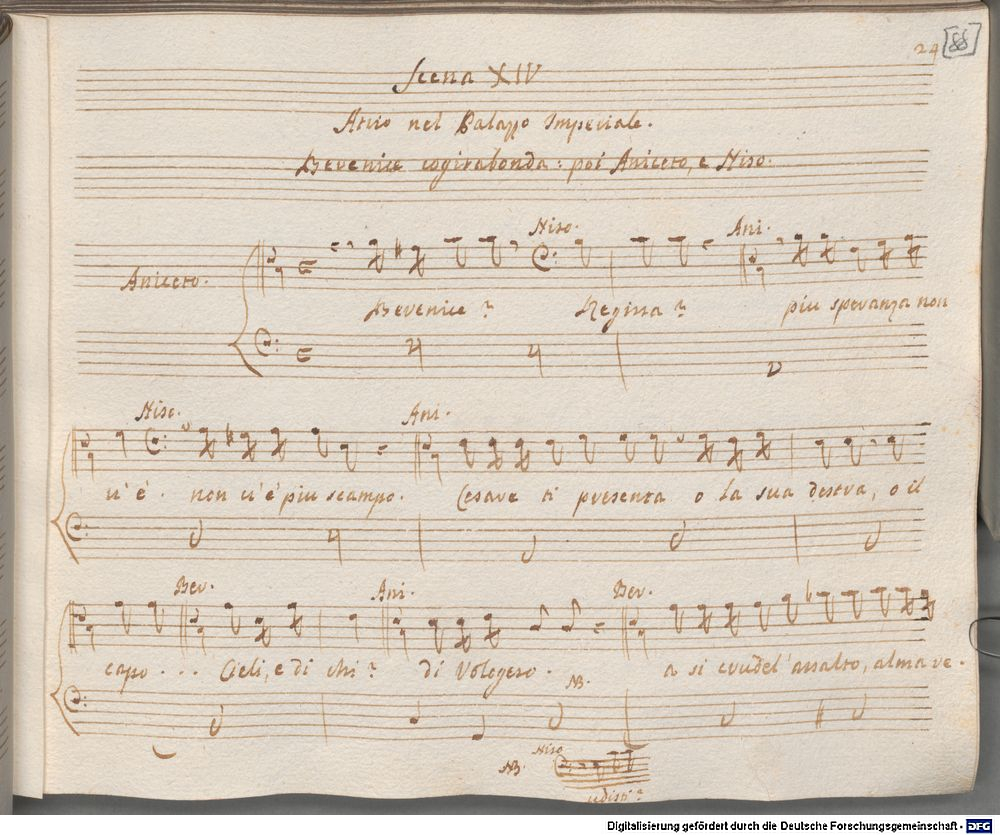 24 [88]
Scena XIV
Atrio nel Palazzo Imperiale.
Berenice cogirabonda: poi Aniceto, e Niso.
Niso. Ani.
Aniceto.
Berenice? Regina? piu speranza non
Niso. Ani.
v'è. non v'è piu scampo. Cesare ti presenta o la sua destra, o il
Ber. Ani. Ber.
capo... Cieli, e di chi? di Vologeso. a si crudel' assalto, alma re-
NB.
NB. Niso
udisti?
Digitalisierung gefördert durch die Deutsche Forschungsgemeinschaft - DFG